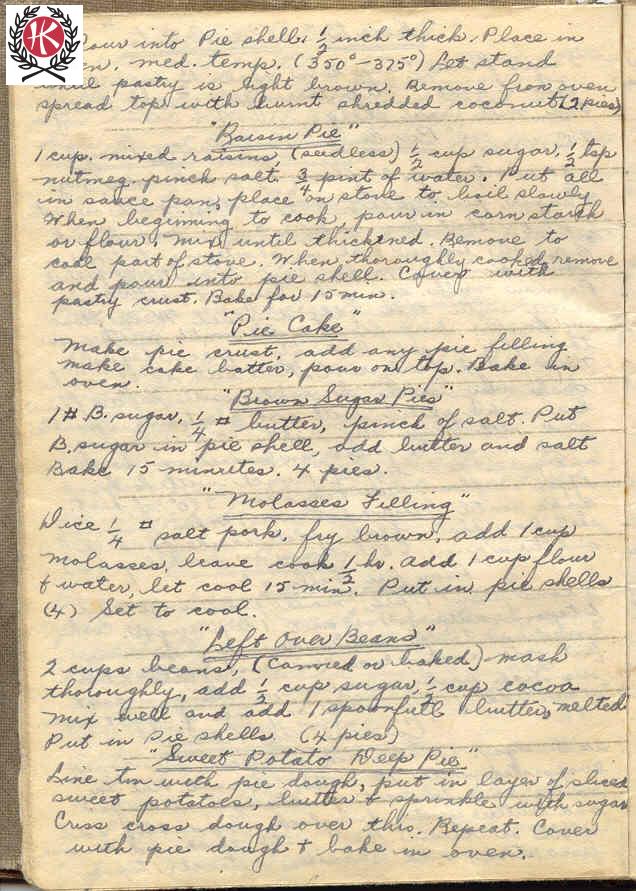 K
Pour into Pie shell. 1/2 inch thick. Place in
med. temp. (350°-375°) Let stand
until pastry is light brown. Remove from oven
spread top with burnt shredded coconut (2 pies)
"Raisin Pie"
1 cup. mixed raisins, (seedless) 1/2 cup sugar, 1/2 tsp
nutmeg. pinch salt. 3/4 pint of water. Put all
in sauce pan, place on stove to boil slowly
When beginning to cook, pour in corn starch
or flour. mix until thickened. Remove to
cool part of stove. When thoroughly cooked, remove
and pour into pie shell. Cover with
pastry crust. Bake for 15 min.
"Pie Cake"
Make pie crust, add any pie filling
make cake batter, pour on top. Bake in
oven.
"Brown Sugar Pies"
1# B. sugar, 1/4 # butter, pinch of salt. Put
B. sugar in pie shell, add butter and salt
Bake 15 minutes. 4 pies.
"Molasses Filling"
Dice 1/4 # salt pork, fry brown, add 1 cup
Molasses, leave cook 1/2 hr. add 1 cup flour
& water, let cool 15 min. Put in pie shells
(4) Set to cool.
"Left Over Beans"
2 cups beans, (Canned or baked) mash
thoroughly, add 1/2 cup sugar, 1/2 cup cocoa
mix well and add 1 spoonfull butter, melted
Put in Pie shells (4 pies)
"Sweet Potato Deep Pie"
Line tin with pie dough, put in layer of sliced
sweet potatoes, butter & sprinkle with sugar
Criss cross dough over this. Repeat. Cover
with pie dough & bake in oven.